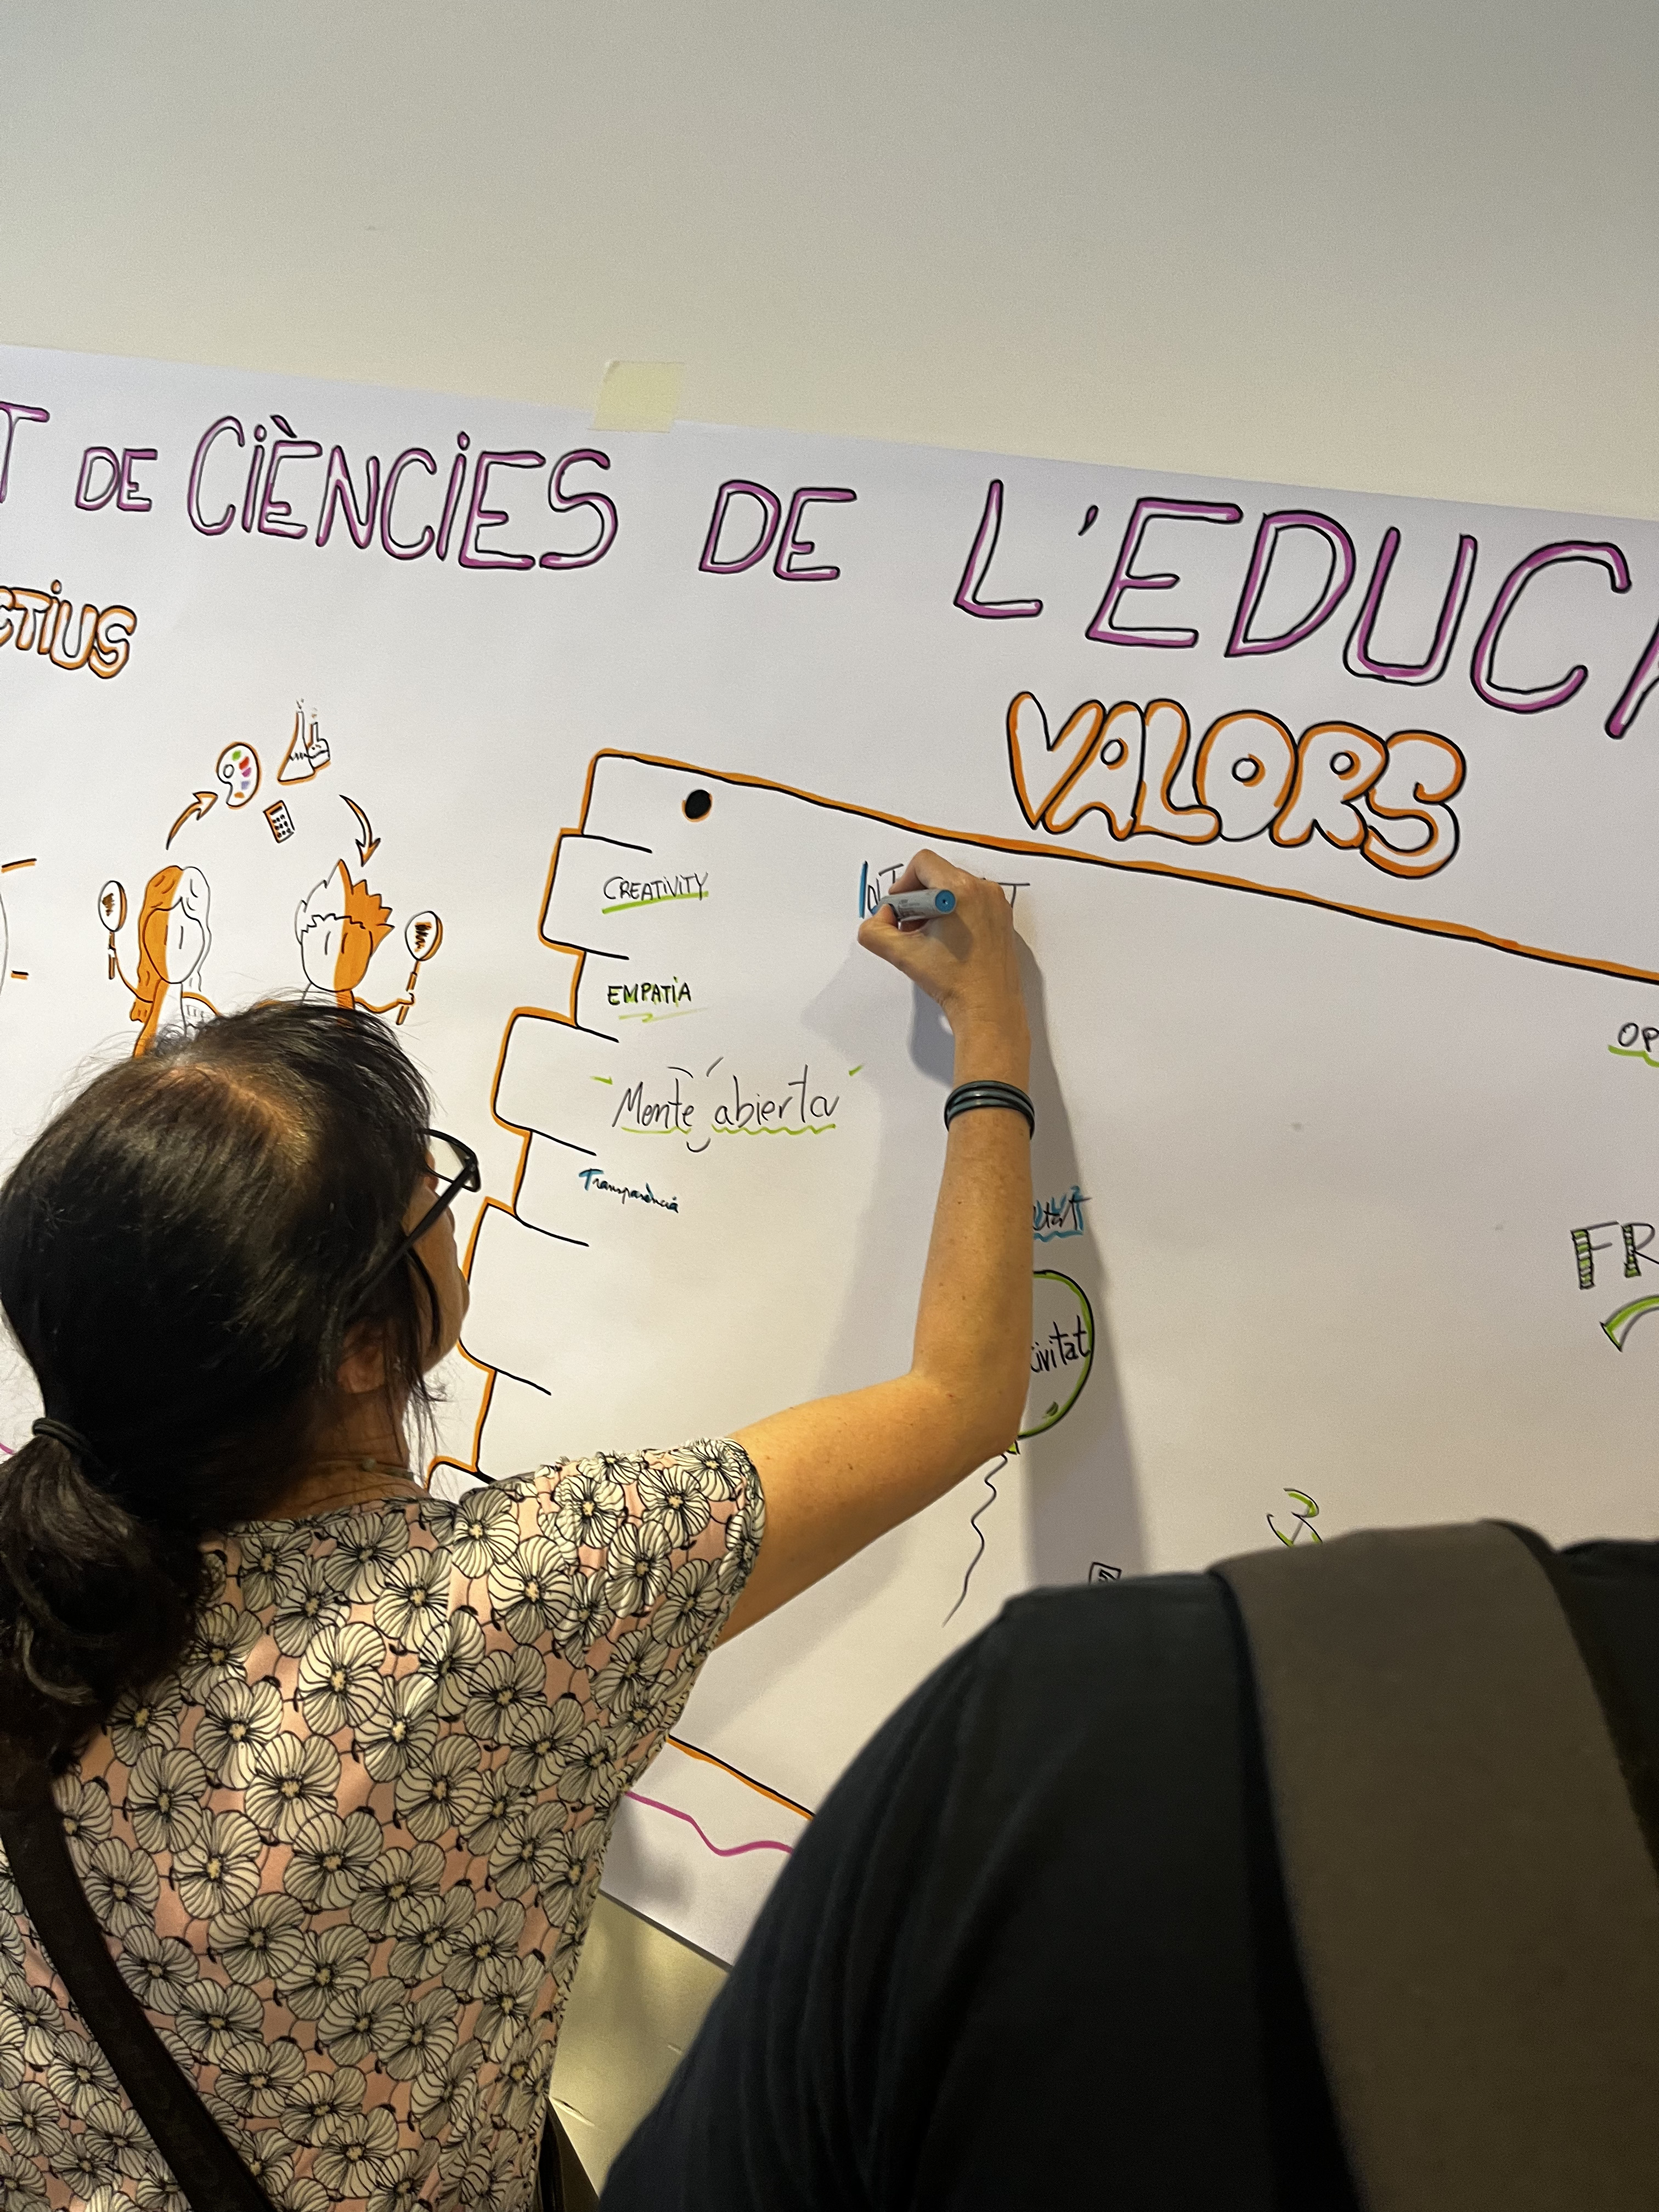 T DE CIÈNCIES DE L'EDUCA
CTIUS
VALORS
CREATIVITY
EMPATIA
Mente abierta
Transparència
OP
ivitat
FR